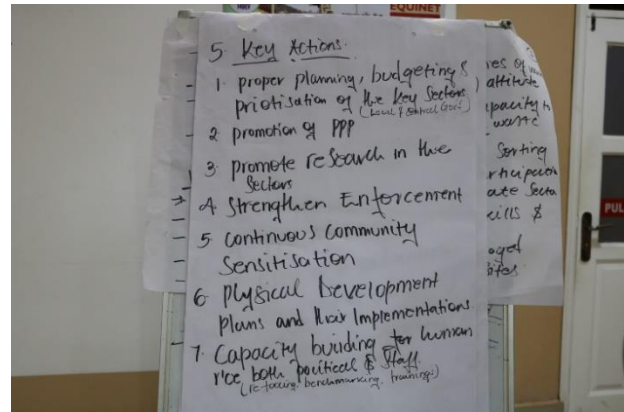 EQUINET
5 Key Actions.
1. proper planning, budgeting &
priotisation of the Key Sectors
(Local & Central Govt)
2 promotion of PPP
3. promote research in the
Sectors
4. Strengthen Enforcement
5. continuous community
Sensitisation
6. Physical Development
plans and their Implementations
7. Capacity building for human
r'ce both political & staff.
(re-tooling. benchmarking. trainings)
attitude
waste
Sorting
PUL